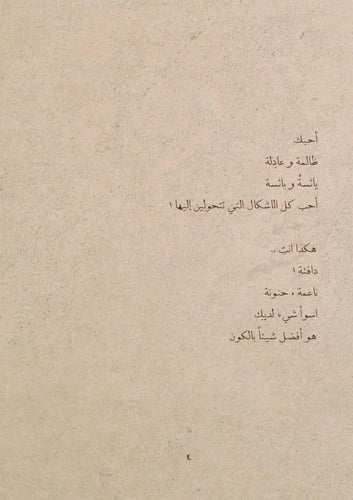 أحبك
ظالمة و عادلة
يائسةُ و بائسة
أحب كل الاشكال التي تتحولين إليها !
هكذا انتِ ..
دافئة !
ناعمة ، حنونة
اسوأ شيء لديكِ
هو أفضل شيئاً بالكون
٤